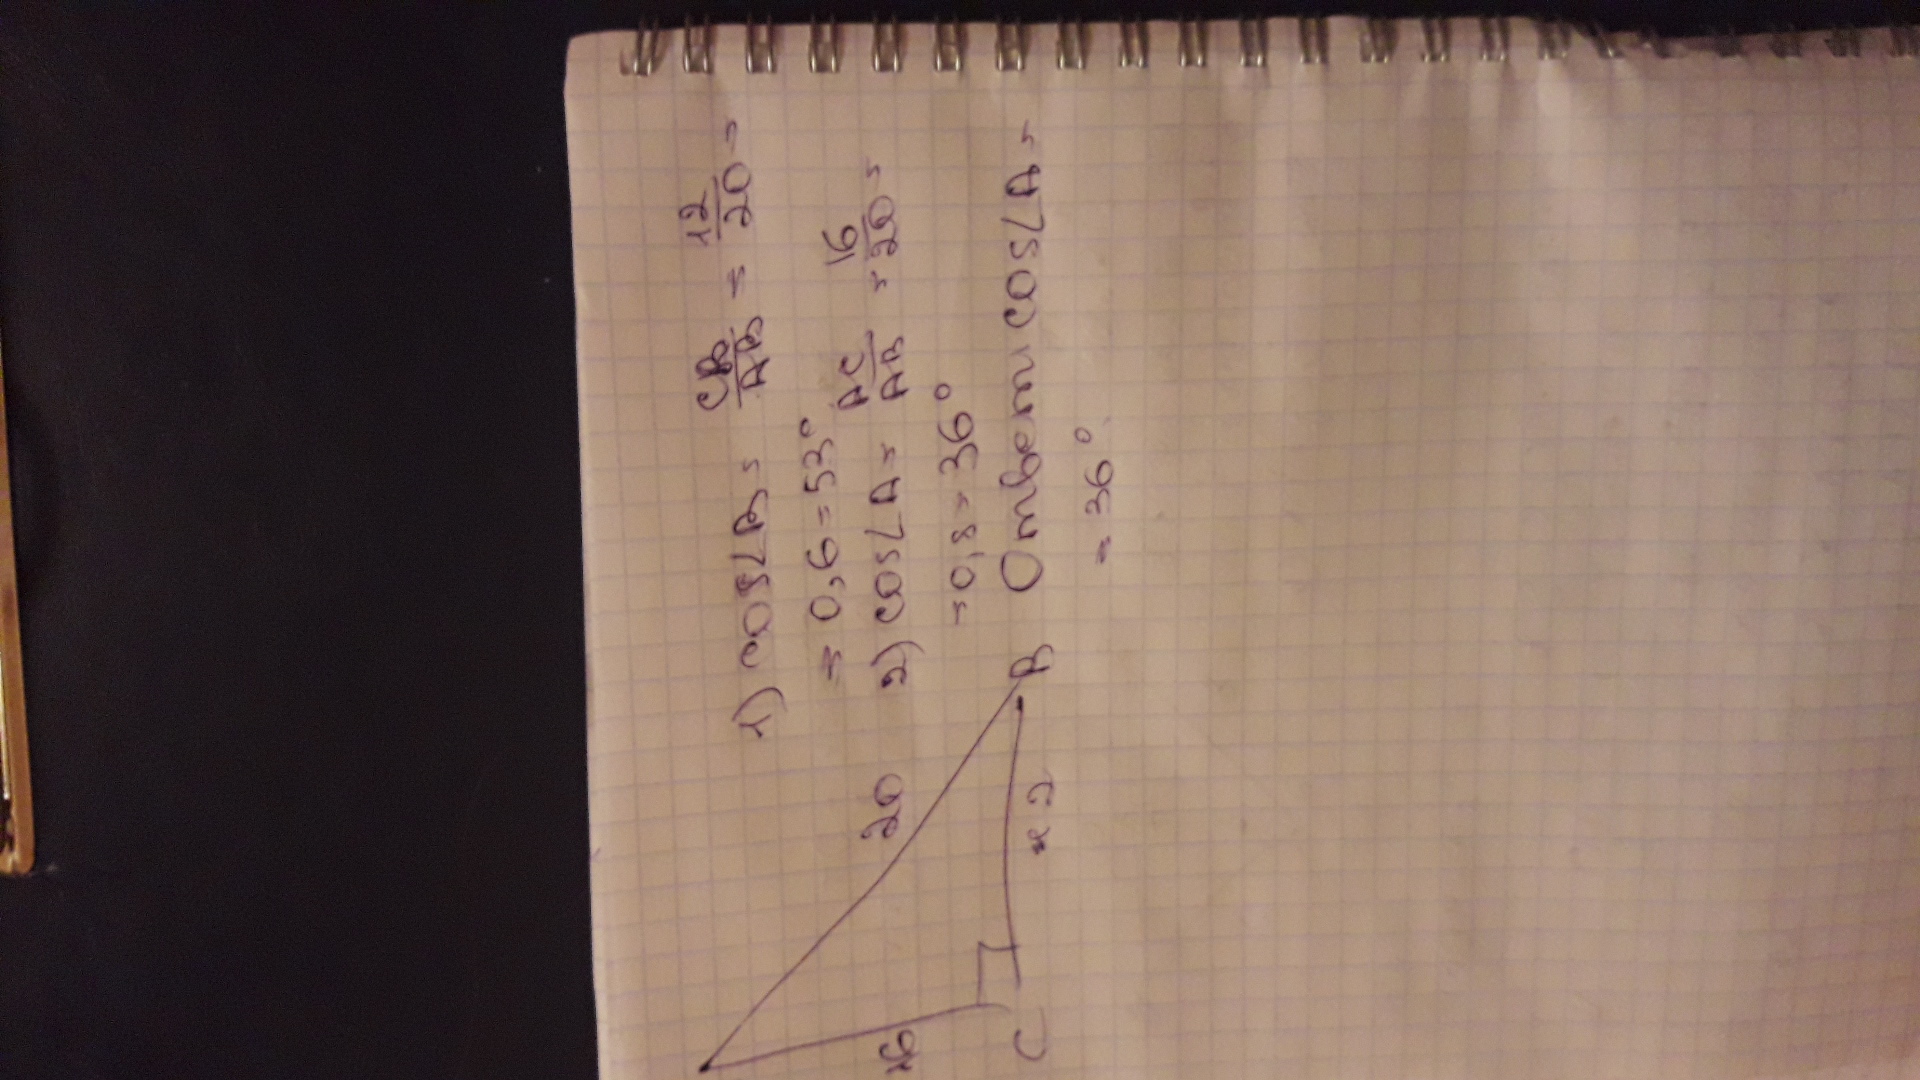 1) cos∠B = CB/AB = 12/20 =
= 0,6 = 53°
2) cos∠A = AC/AB = 16/20 =
= 0,8 = 36°
Ответ: cos∠A =
= 36°.
20
16
12
C
B